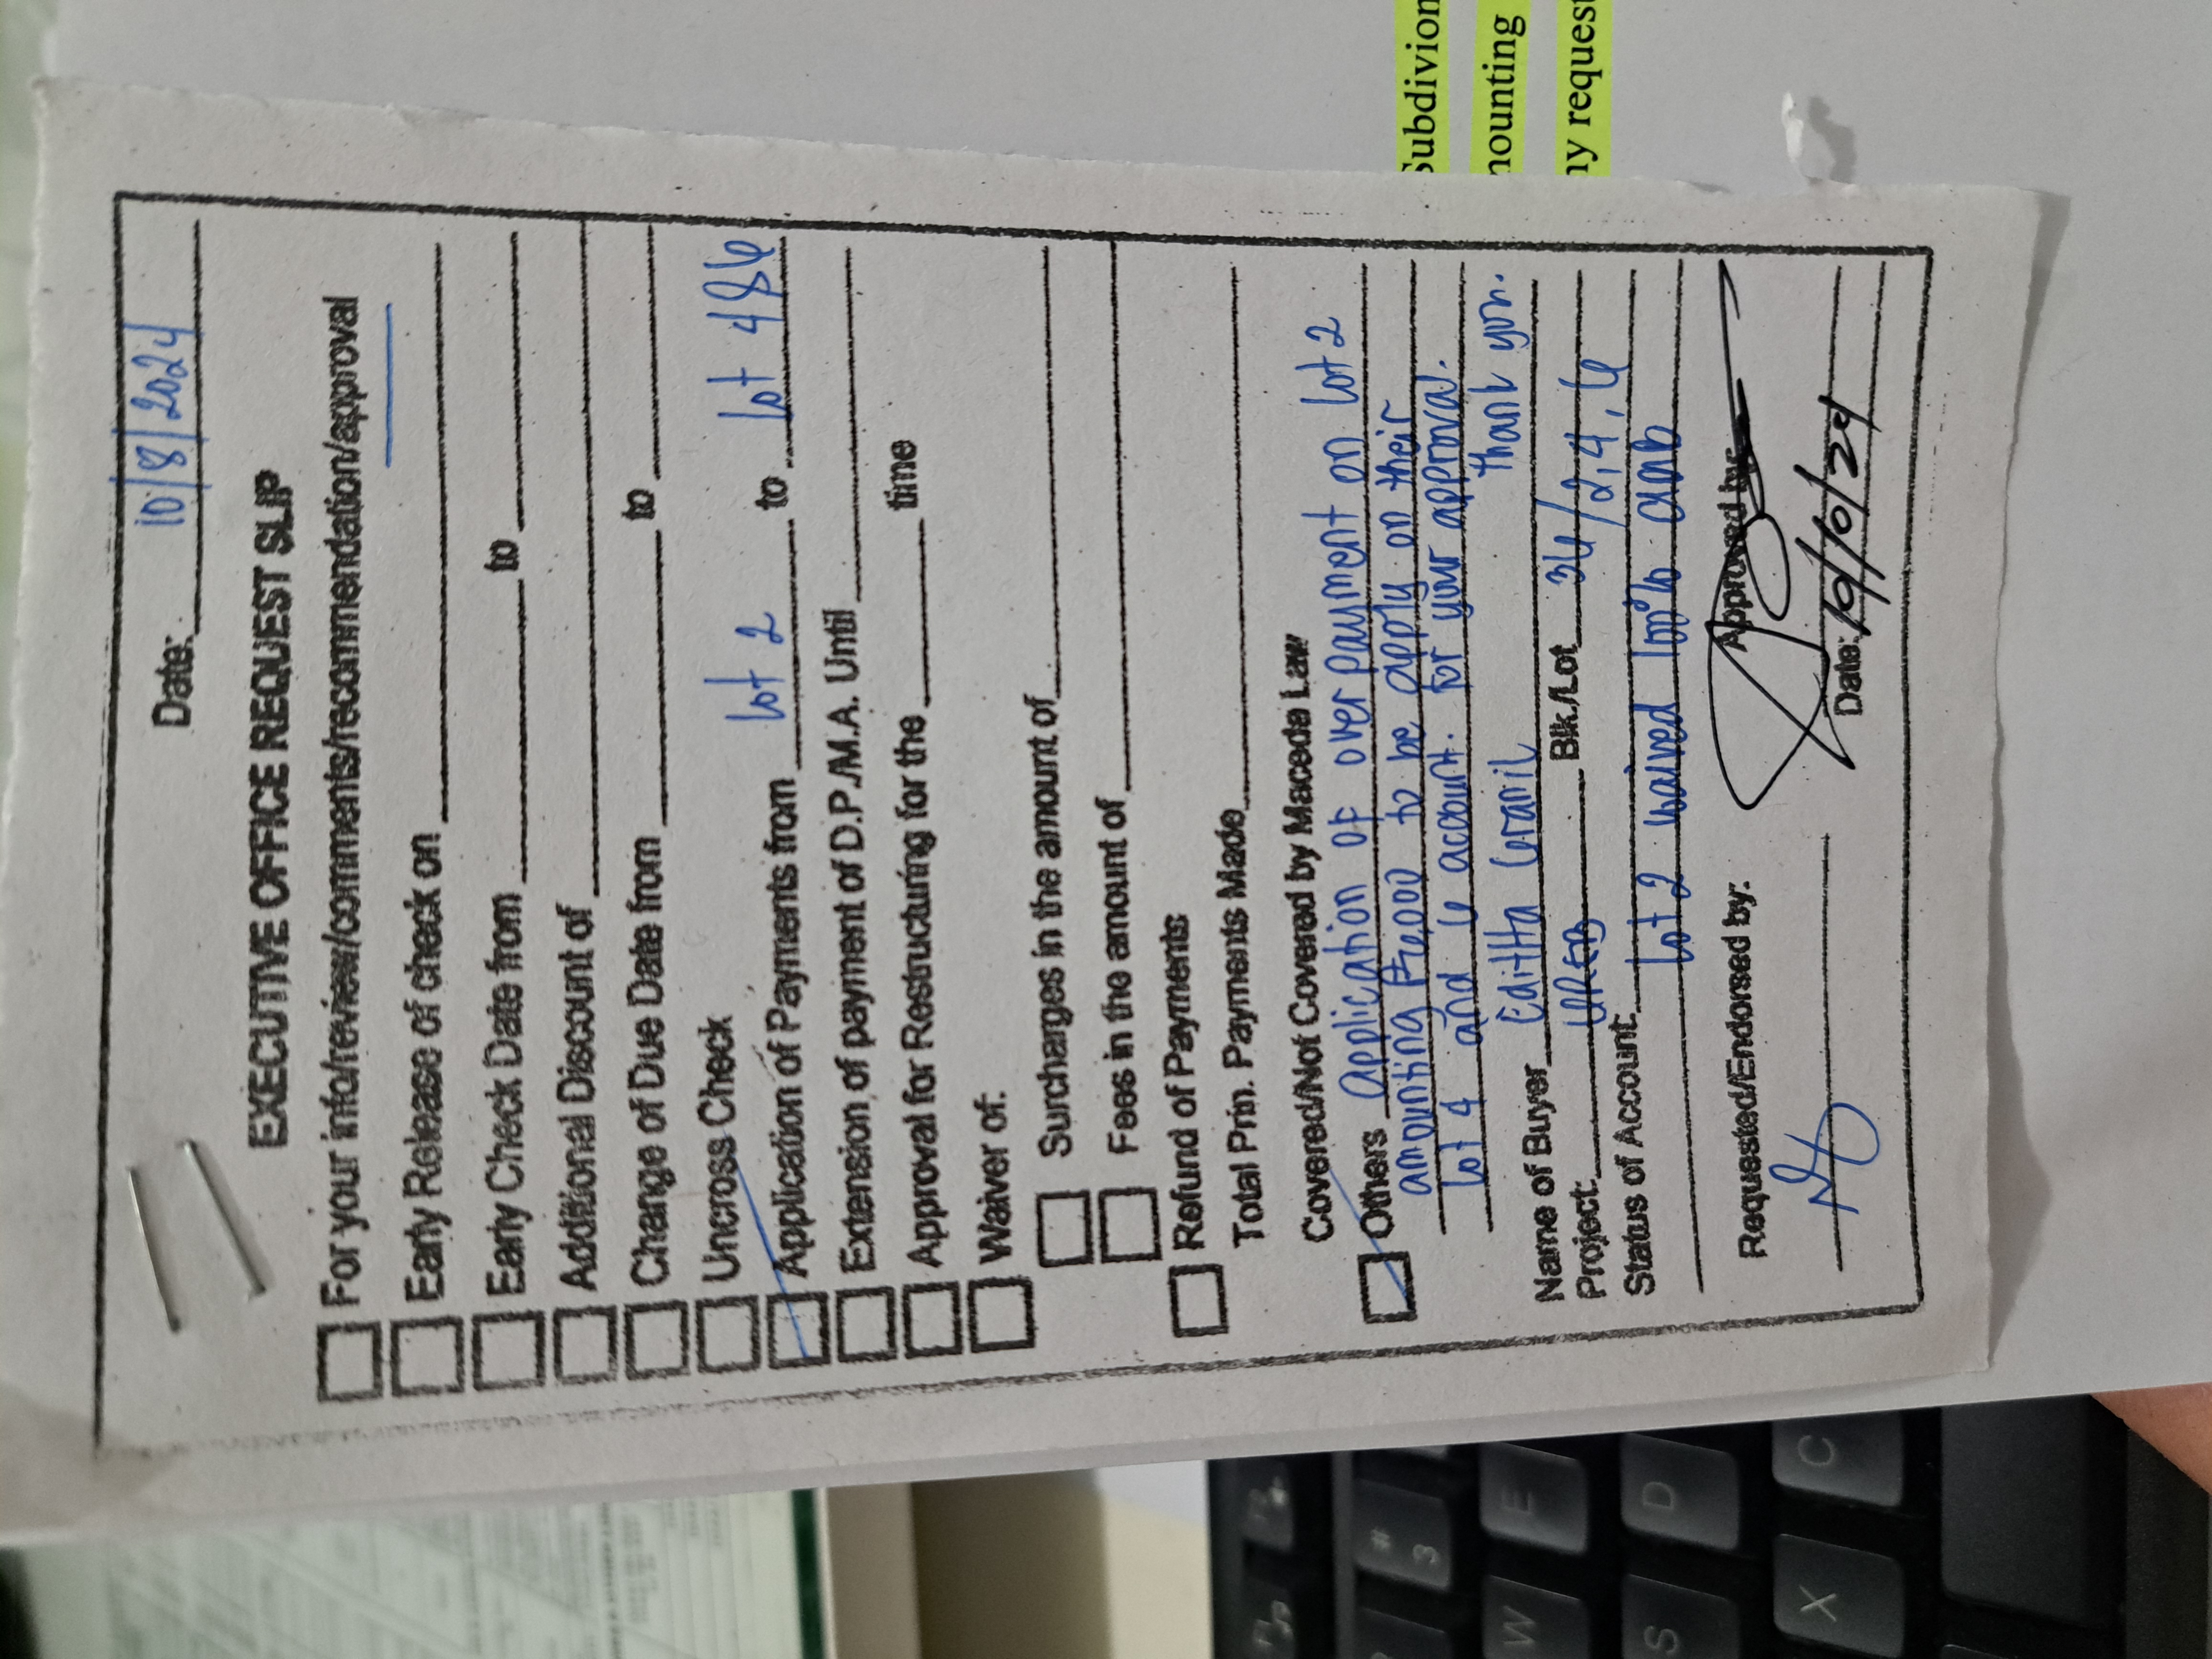 Date: 10/8/2024
EXECUTIVE OFFICE REQUEST SLIP
For your info/review/comments/recommendation/approval
Early Release of check on
Early Check Date from to
Additional Discount of
Change of Due Date from to
Uncross Check
Application of Payments from lot 2 to lot 4&6
Extension of payment of D.P./M.A. Until
Approval for Restructuring for the time
Waiver of:
Surcharges in the amount of
Fees in the amount of
Refund of Payments
Total Prin. Payments Made
Covered/Not Covered by Maceda Law
Others Application of over payment on lot 2
amounting to be apply on their
lot 4 and 6 account. For your approval.
Thank you.
Name of Buyer Editha Granil
Project: Blk./Lot 36/2,4,6
Status of Account:
lot 2 waived 100%
Requested/Endorsed by: Approved by:
Date: 10/10/24
Subdivion
nounting
ny request